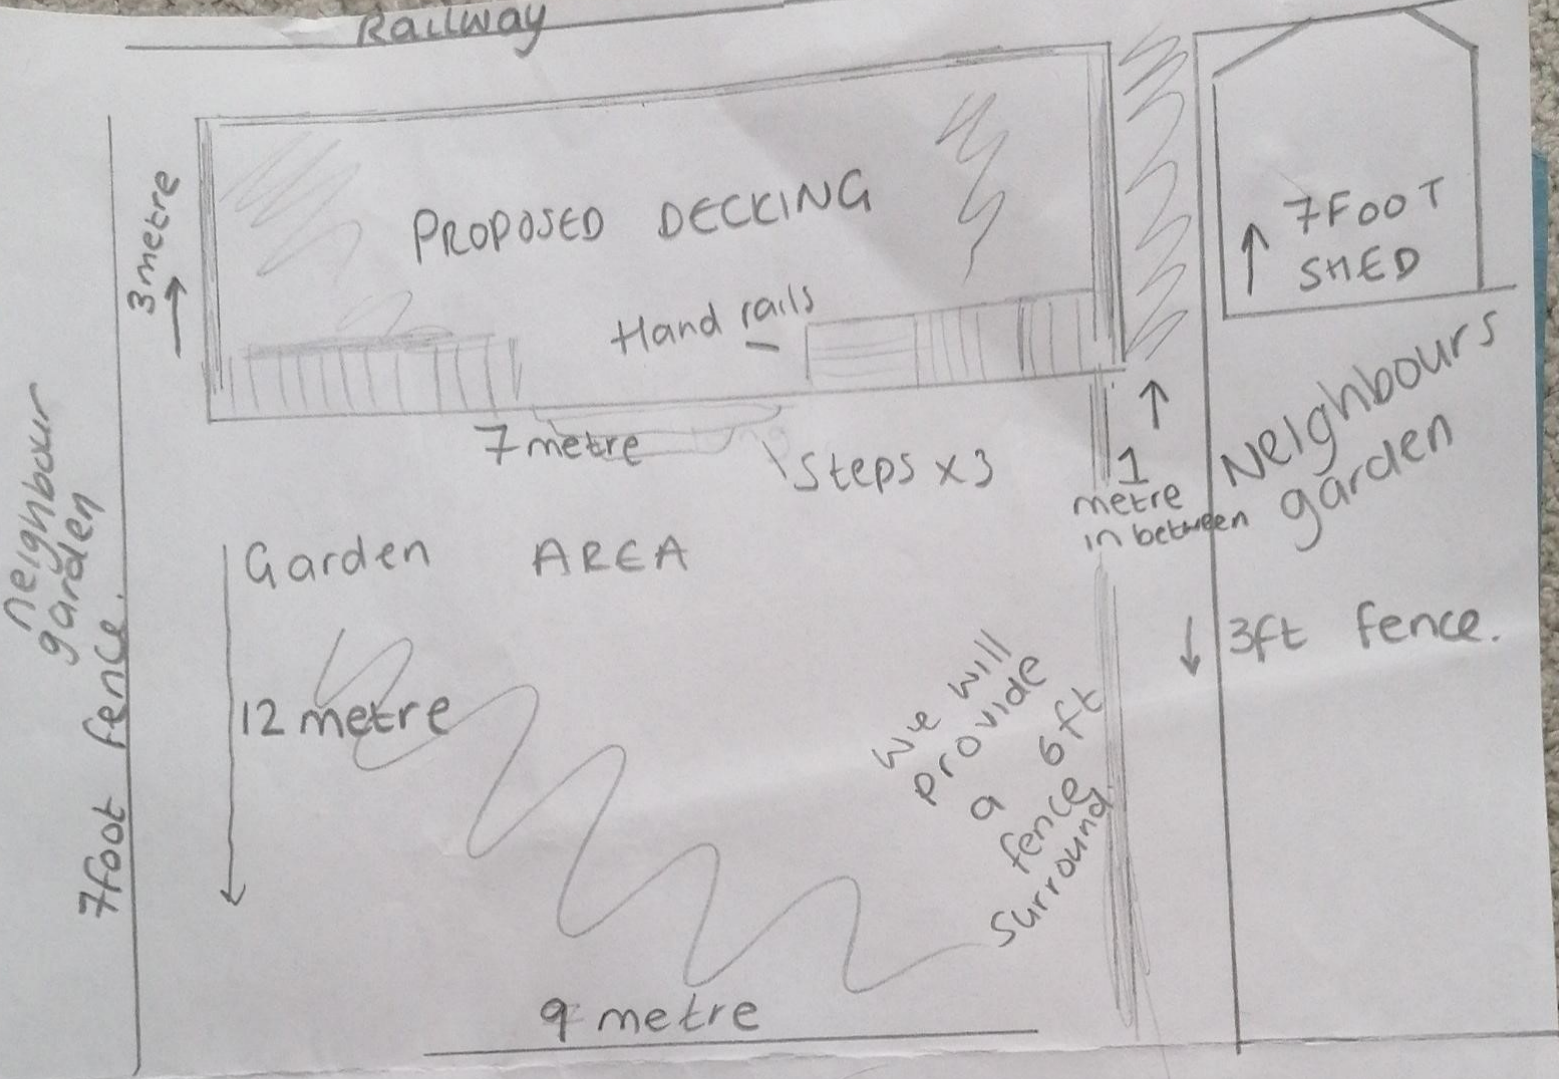 Railway
3 metre
PROPOSED DECKING
Hand rails
7 metre
Steps x 3
7 FOOT
SHED
1
metre
in between
Neighbours
garden
neighbour
garden
7foot fence.
Garden AREA
12 metre
3ft fence.
we will
provide
a 6ft
fence
surround
9 metre